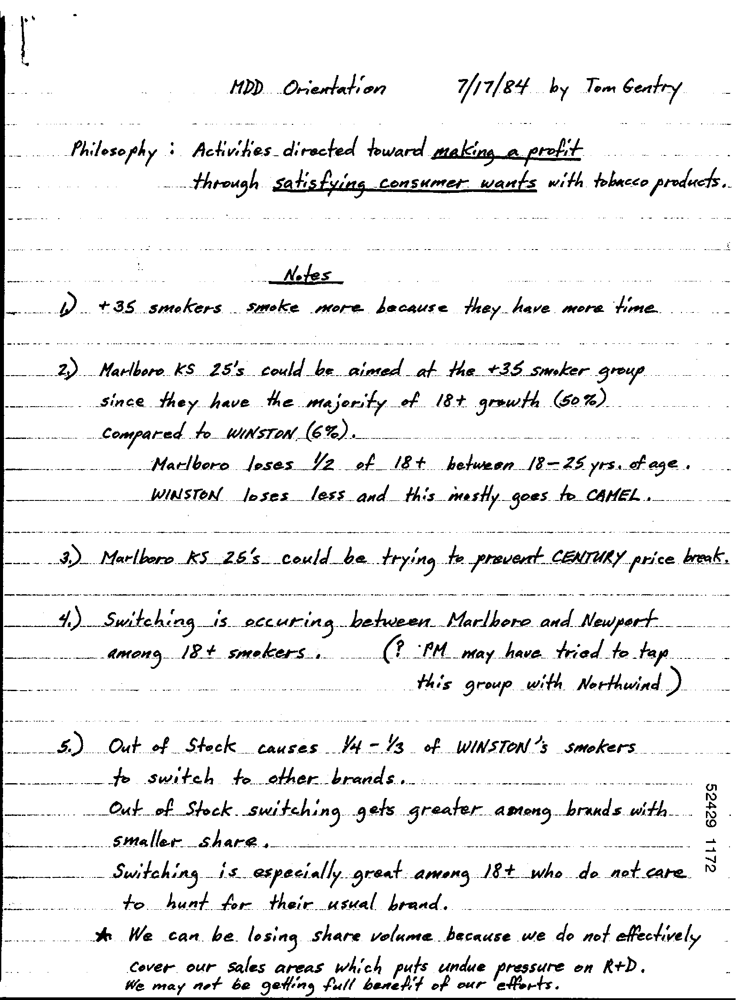 MDD Orientation 7/17/84 by Tom Gentry
Philosophy : Activities directed toward making a profit
through satisfying consumer wants with tobacco products.
Notes
1.) +35 smokers smoke more because they have more time
2.) Marlboro KS 25's could be aimed at the +35 smoker group
since they have the majority of 18+ growth (50%)
compared to WINSTON (6%).
Marlboro loses 1/2 of 18+ between 18-25 yrs. of age.
WINSTON loses less and this mostly goes to CAMEL.
3.) Marlboro KS 25's could be trying to prevent CENTURY price break.
4.) Switching is occuring between Marlboro and Newport
among 18+ smokers. (? PM may have tried to tap
this group with Northwind)
5.) Out of Stock causes 1/4 - 1/3 of WINSTON's smokers
to switch to other brands.
Out of Stock switching gets greater among brands with
smaller share.
Switching is especially great among 18+ who do not care
to hunt for their usual brand.
* We can be losing share volume because we do not effectively
cover our sales areas which puts undue pressure on R+D.
We may not be getting full benefit of our efforts.
52429 1172